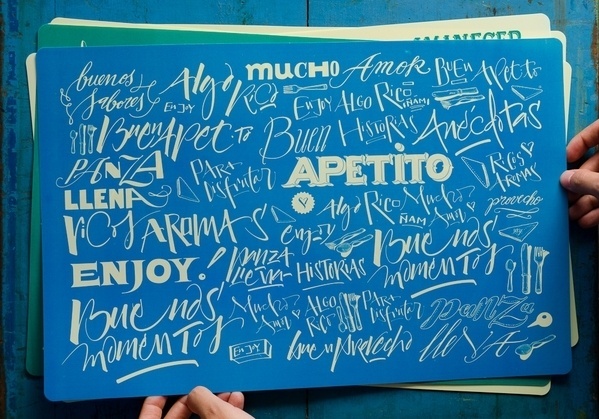 AMANECER
buenos sabores
ENJOY
Algo Rico
mucho Amor
ENJOY ALGO RICO
ÑAM!
Buen Apetito
Buen Apetito
Buen Historias Anécdotas
PANZA LLENA
PARA disfrutar
APETITO
RICOS AROMAS
provecho
RICOS AROMAS
Algo RICO Mucho Amor
ÑAM
enjoy
Buenos momentos
ENJOY!
panza llena HISTORIAS
Buenos momentos
Mucho Amor
ALGO RICO
PARA disfrutar
panza llena
ENJOY
buen provecho